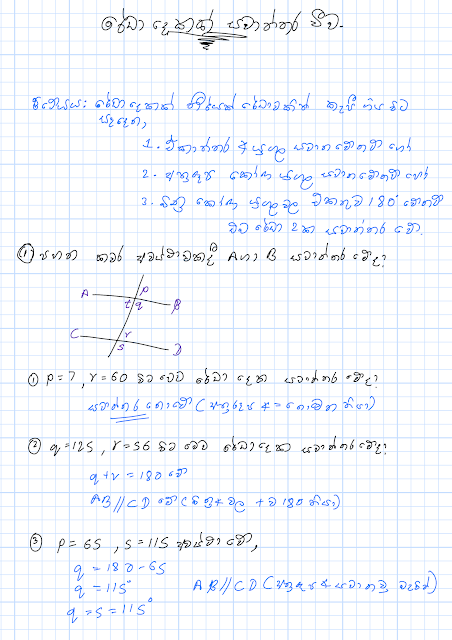 රේඛා දෙකක් සමාන්තර වීම.
ප්‍රමේයය: රේඛා දෙකක් තීර්යක් රේඛාවකින් කැපී ගිය විට
සෑදෙන,
1. ඒකාන්තර ∠ යුගල සමාන වෙතත් හෝ
2. අනුරූප කෝණ යුගල සමාන වෙතත් හෝ
3. මිත්‍ර කෝණ යුගල වල එකතුව 180° වෙතත්
එම රේඛා 2ක සමාන්තර වේ.
① පහත කවර අවස්ථාවකදී A හා B සමාන්තර වේද?
A P
t q B
C r
S D
① P=7, r=60 විට මෙම රේඛා දෙක සමාන්තර වේද?
සමාන්තර නොවේ (අනුරූප ∠ = නොමැති නිසා)
② q=125, r=56 විට මෙම රේඛා දෙක සමාන්තර වේද?
q+r=180 වේ
AB//CD වේ (මිත්‍ර ∠ වල +ව 180 නිසා)
③ P=65, S=115 අවස්ථා වේ,
q = 180-65
q = 115° AB//CD (අනුරූප ∠ සමාන වූ බැවින්)
q = s = 115°